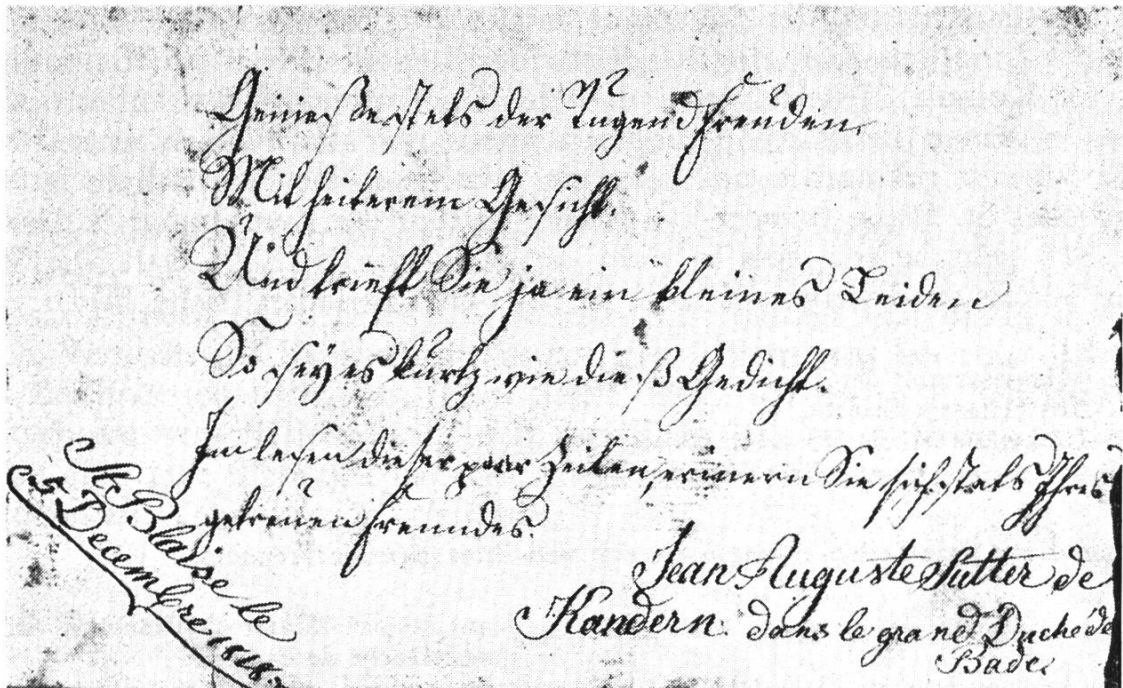 Genieße stets der Tugend Freuden,
Mit heiterem Gesicht.
Und trieft Sie ja ein kleines Leiden
So sey es kurtz wie dieß Gedicht.
Im lesen dieser paar Zeilen, erinern Sie sich stets Ihres
getreuen Freundes.
Jean Auguste Sutter de
Kandern dans le grand Duché de
Bade.
St Blaise le
5 Decembre 1818